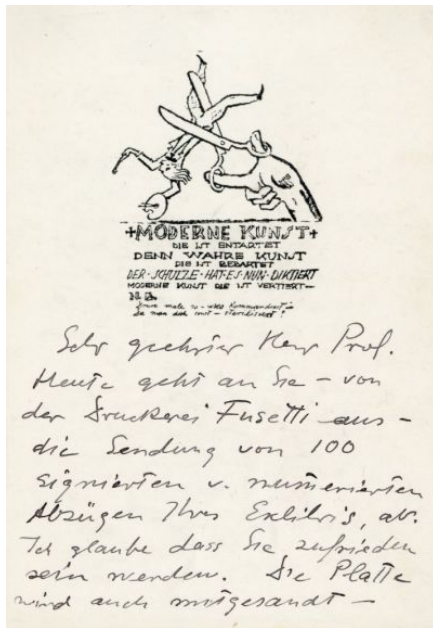 +MODERNE KUNST+
DIE IST ENTARTET
DENN WAHRE KUNST
DIE IST BEBARTET
DER·SCHULZE·HAT·ES·NUN·DIKTIERT
MODERNE KUNST DIE IST VERTIERT—
N.B.
Sehr geehrter Herr Prof.
Heute geht an Sie – von
der Druckerei Fusetti aus –
die Sendung von 100
signierten u. numerierten
Abzügen Ihres Exlibris, ab.
Ich glaube dass Sie zufrieden
sein werden. Die Platte
wird auch mitgesandt –